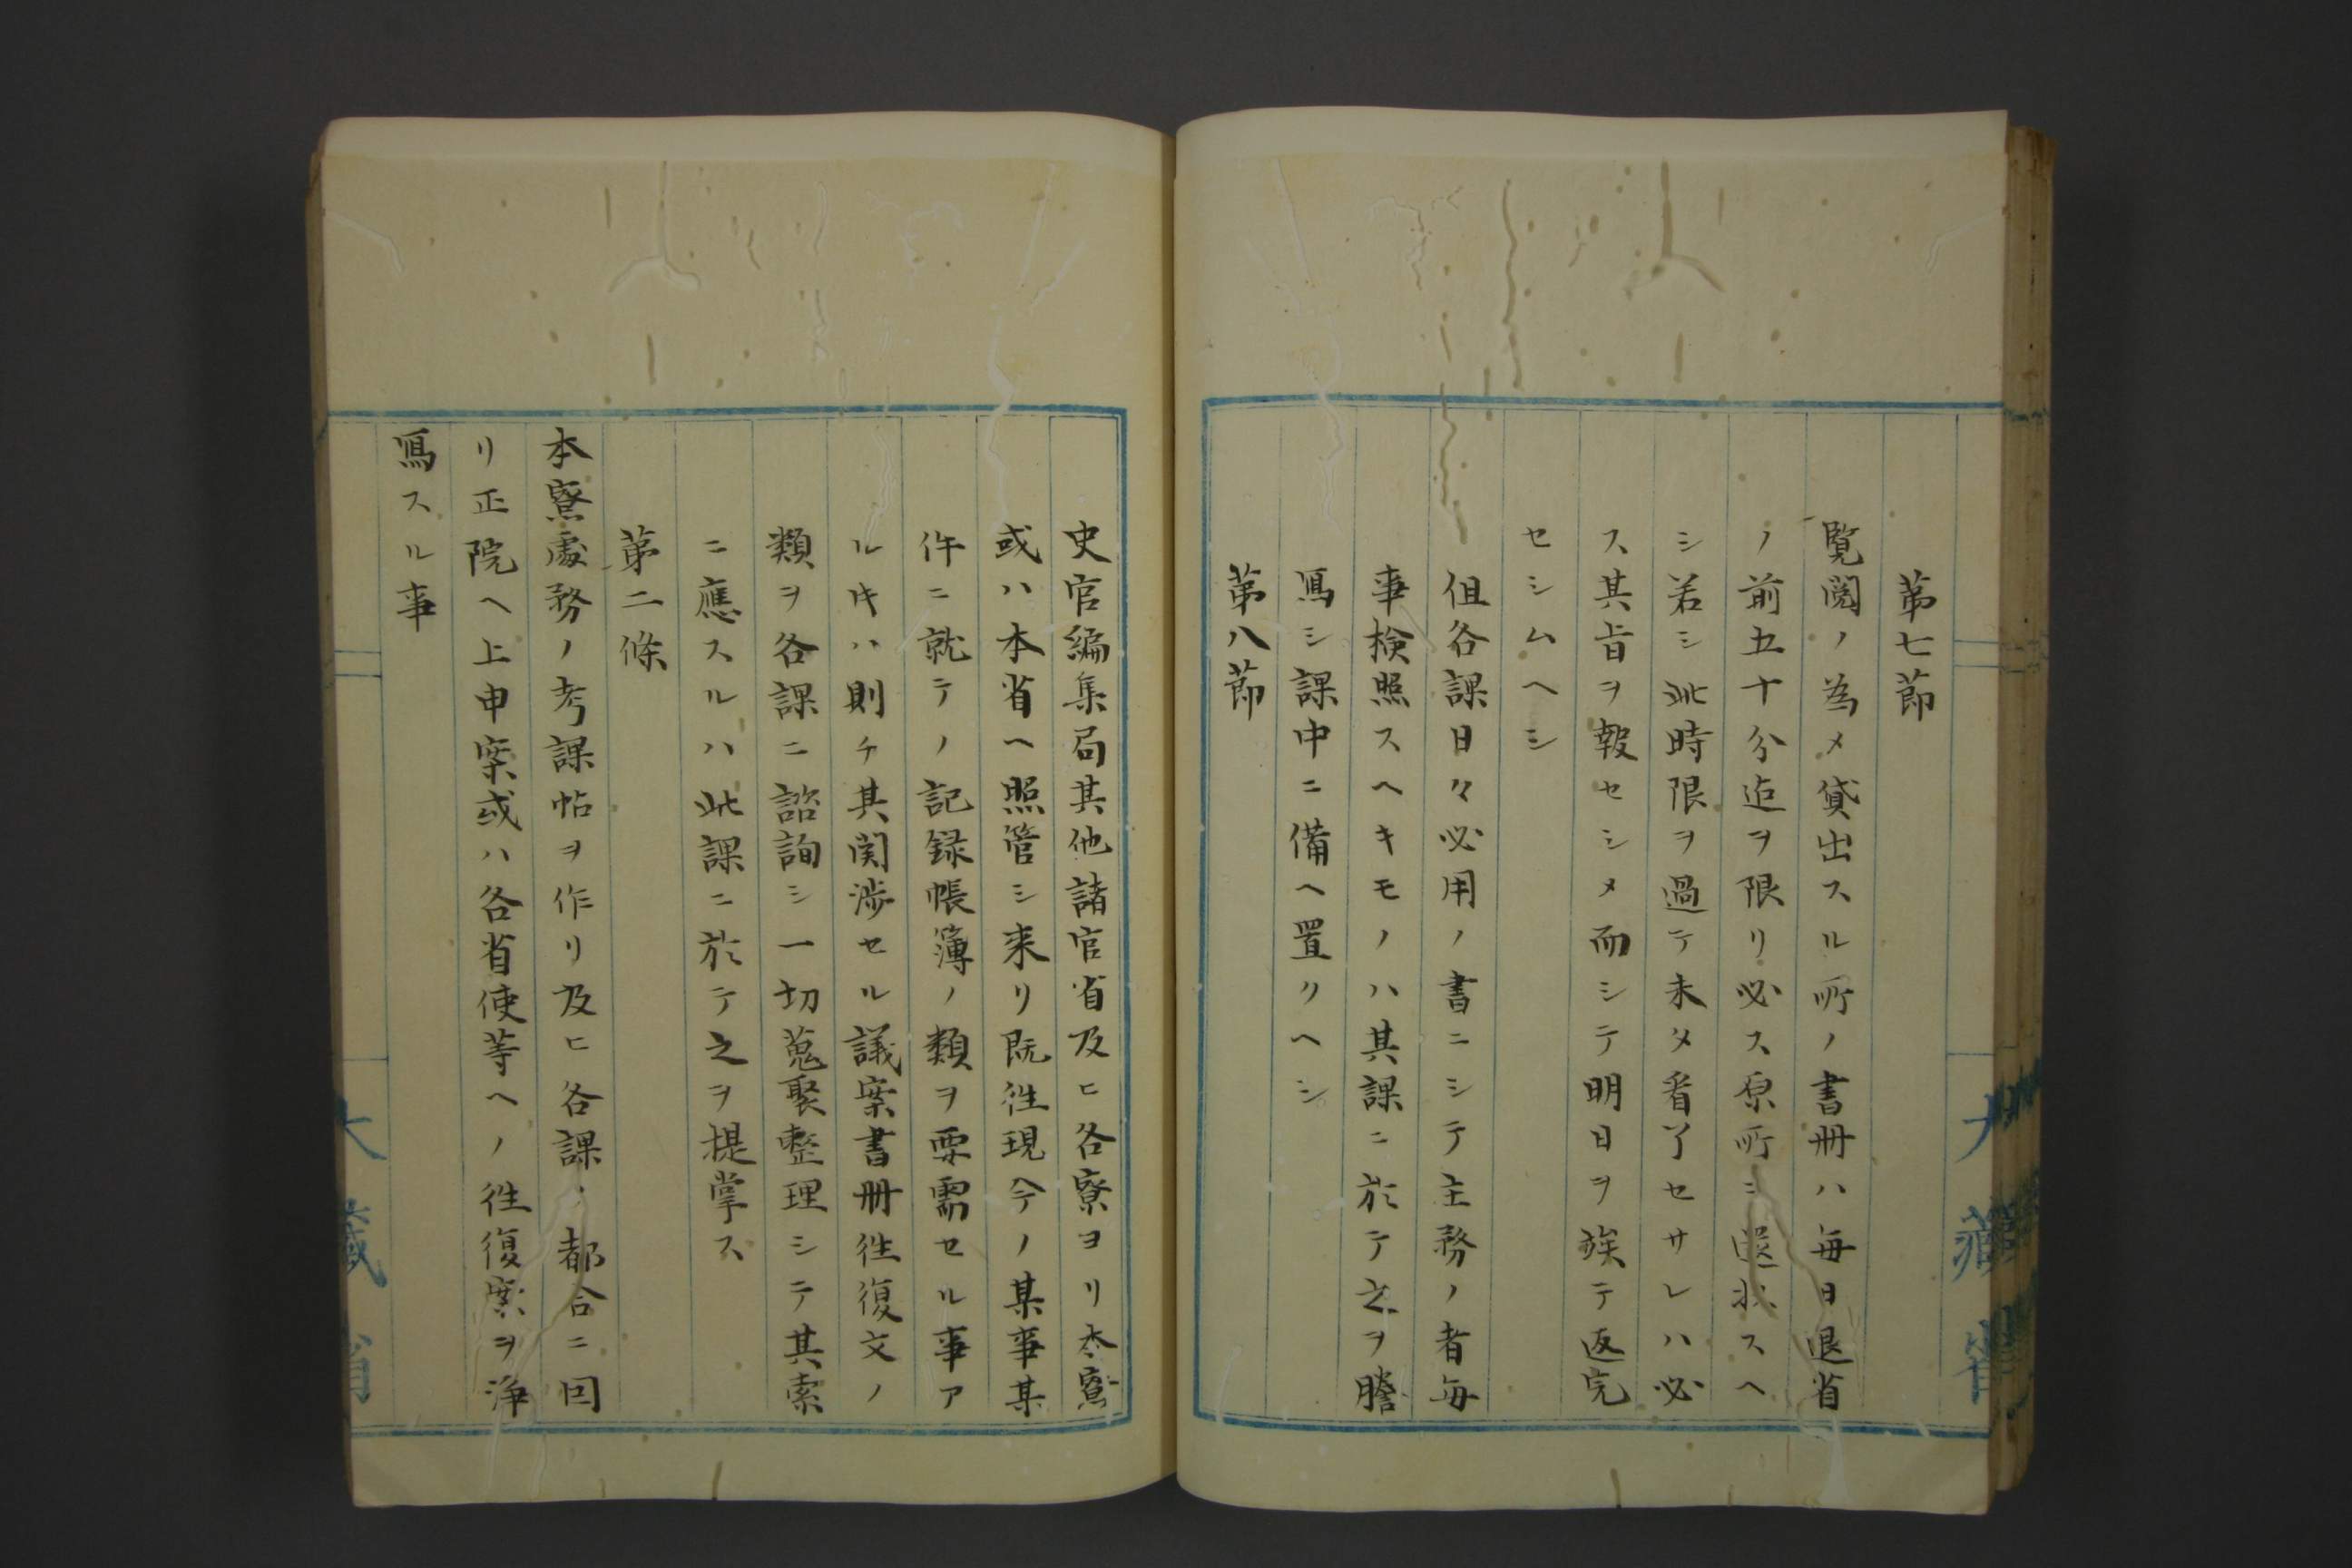 第七節
覧閲ノ為メ貸出スル所ノ書冊ハ毎日退省
ノ前五十分迄ヲ限リ必ス原所ニ還 スヘ
シ若シ此時限ヲ過テ未タ看了セサレハ必
ス其旨ヲ報セシメ而シテ明日ヲ竢テ返完
セシムヘシ
但各課日々必用ノ書ニシテ主務ノ者毎
事検照スヘキモノハ其課ニ於テ之ヲ謄
冩シ課中ニ備ヘ置クヘシ
第八節
史官編集局其他諸官省及ヒ各寮ヨリ本寮
或ハ本省ヘ照管シ来リ既徃現今ノ某事某
件ニ就テノ記録帳簿ノ類ヲ要需セル事ア
ルキハ則チ其関渉セル議案書冊徃復文ノ
類ヲ各課ニ諮詢シ一切蒐聚整理シテ其索
ニ應スルハ此課ニ於テ之ヲ提掌ス
第二條
本寮處務ノ考課帖ヲ作リ及ヒ各課ノ都合ニ因
リ正院ヘ上申案或ハ各省使等ヘノ徃復案ヲ浄
冩スル事
大藏省
大藏省